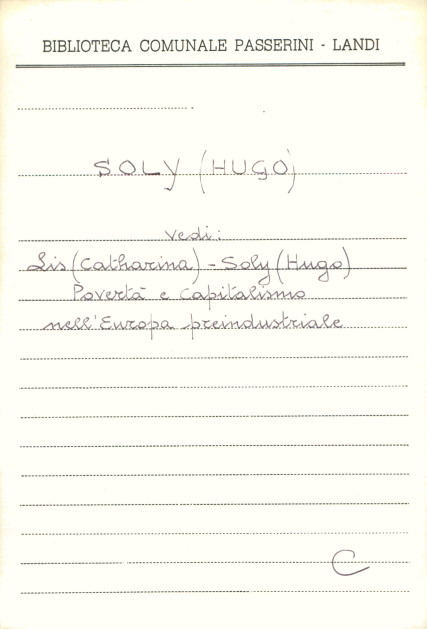 BIBLIOTECA COMUNALE PASSERINI - LANDI
SOLY (HUGO)
vedi:
Lis (Catharina) - Soly (Hugo)
Povertà e capitalismo
nell'Europa preindustriale
C